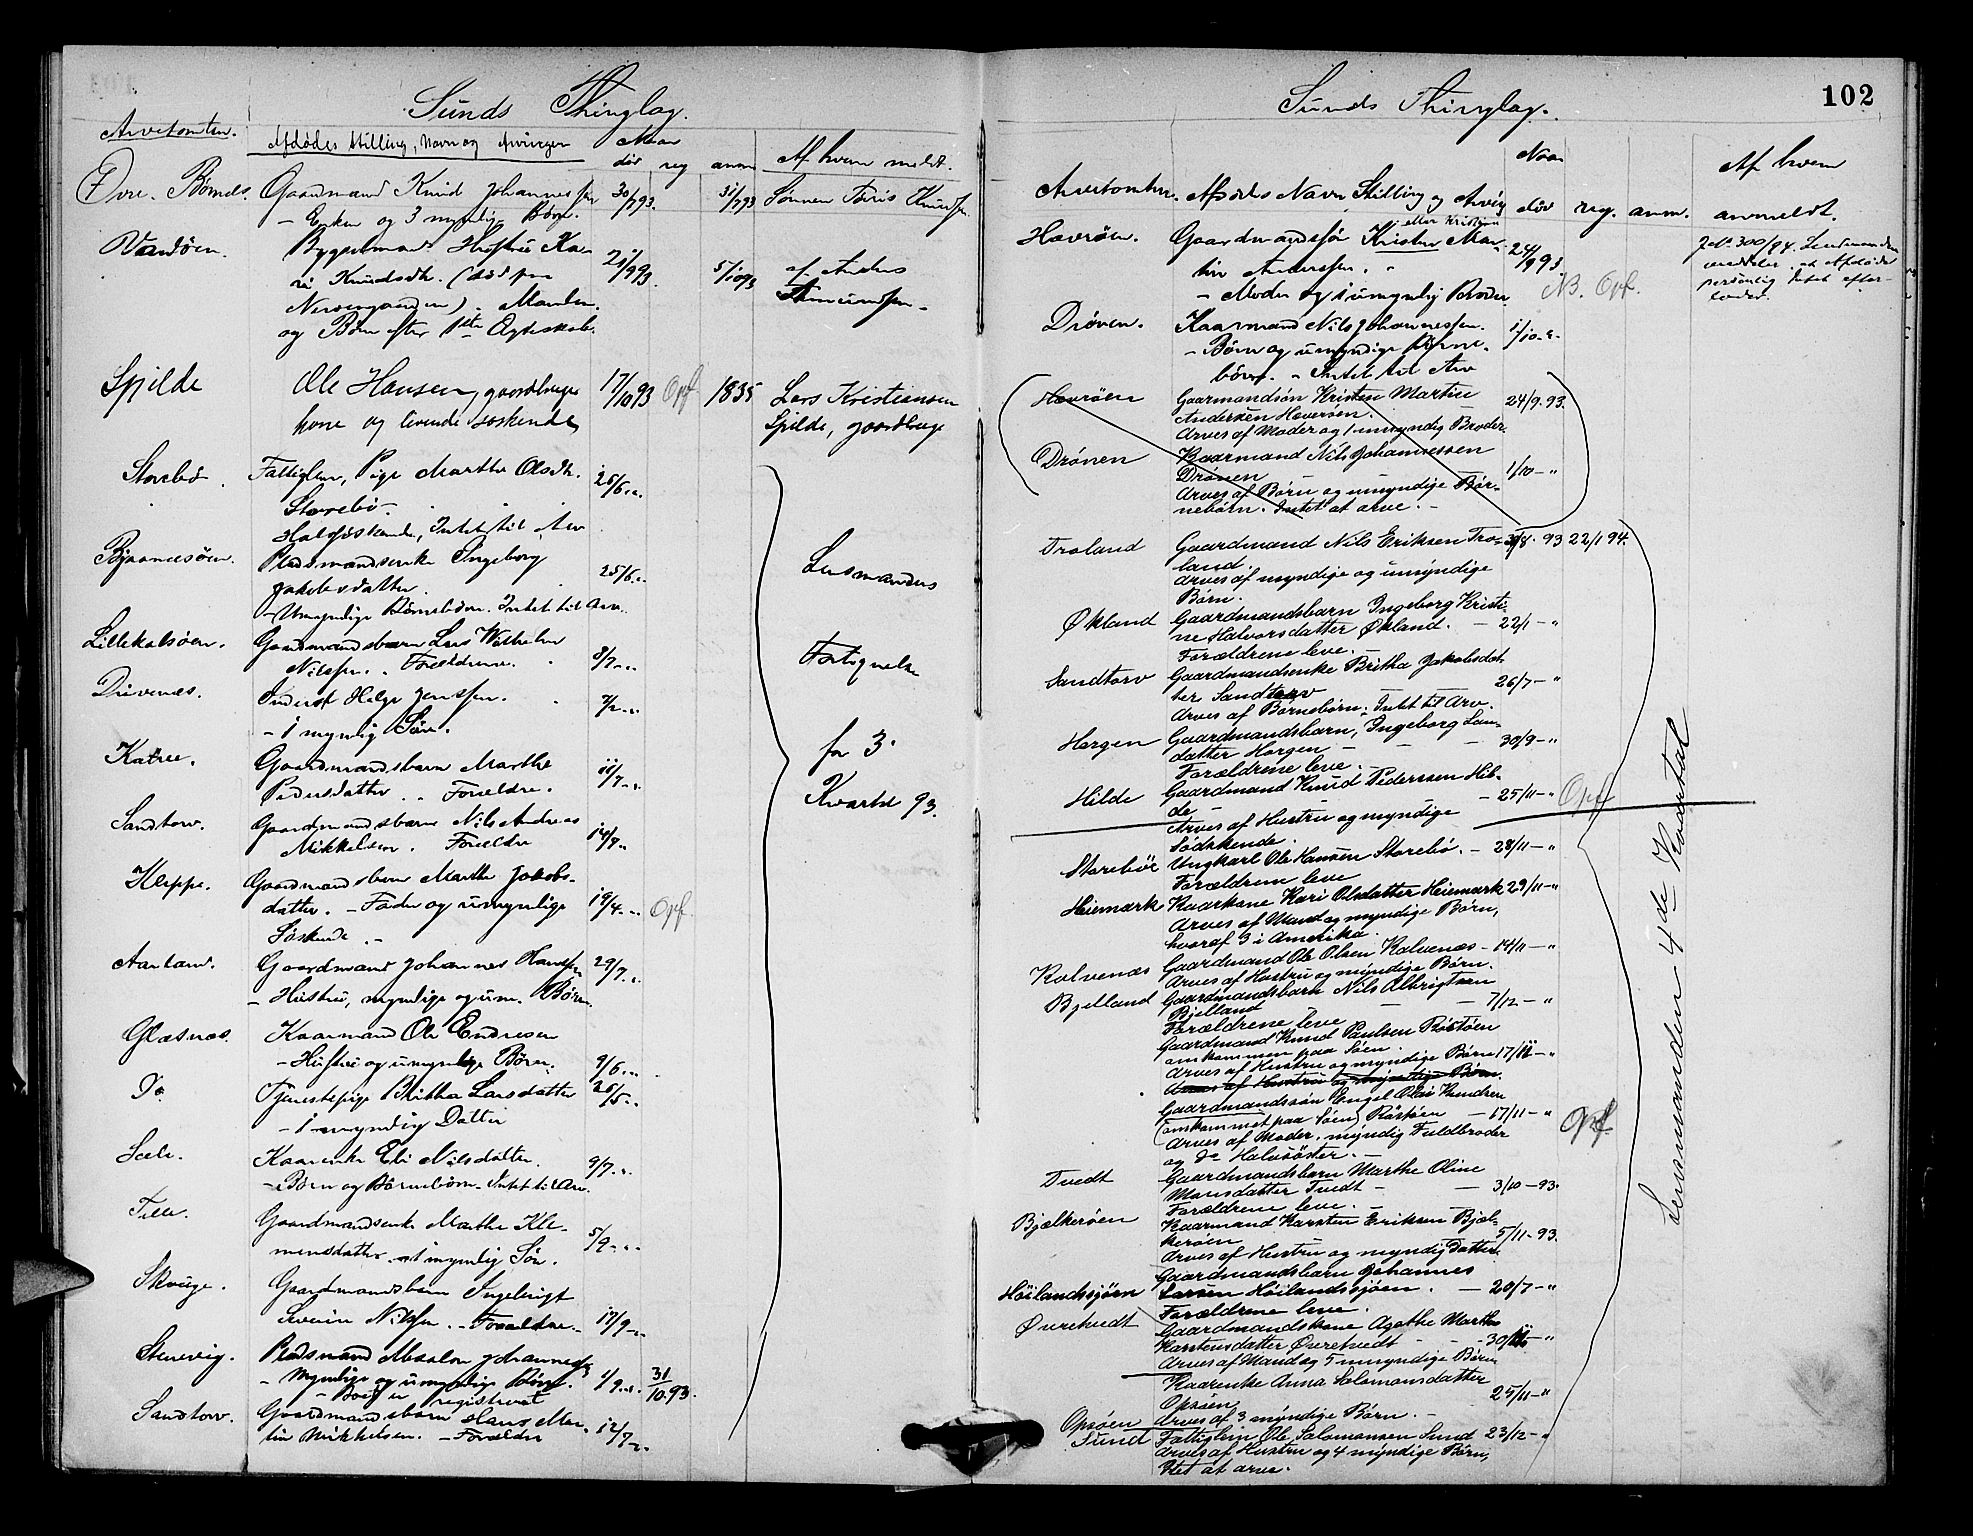 Sunds Thinglag.
Arvetomten.
Afdødes Stilling, Navn og Arvinger
Naar
død
reg
anm
Af hvem meldt.
Øvre Børnes
Gaardmand Knud Johannessen
- Enken og 3 myndige Børn.
30/7 93.
31/7 93
Sønnen
Vardøen.
Hustru Ka-
ri Knudsdtr. (død paa
- Manden
og Børn efter 1ste Egteskab.
21/9 93.
5/10 93
af Anders
Amundsen -
Spilde
Ole Hansen, gaardbruger
kone og levende søskende
17/10 93
Opf
1835
Lars Kristiansen
Spilde, gaardbruger
Storebø.
Fattiglem, Pige Marthe Olsdtr.
Storebø.
Halvsøskende, Intet til Arv
26/6 "
Bjørnevsøen.
Pladsmandsenke Ingeborg
Jakobsdatter.
- Umyndige Børnebørn. Intet til Arv.
25/6 "
Lillekalsøen.
Gaardmandsbarn Lars Wilhelm
Nilssen. Forældrene.
8/7 "
Drivenes.
Inderst Helge Jenssen.
- 1 myndig Søn.
Gaardmandsbarn Marthe
Pedersdatter. Forældre.
11/7 "
Sandtorv.
Gaardmandsbarn Nils Andreas
Mikkelsen. Forældre
14/8 "
Kleppe.
Gaardmandsbarn Marthe Jakobs-
datter. - Fader og umyndige
Søskende. -
19/4 "
Opf.
Aarland.
Gaardmand Johannes Hansen
- Hustru, myndige og um. Børn.
29/7 "
Glæsnæs.
Kaarmand Ole Endresen
- Hustru og umyndige Børn.
9/6 "
Do
Tjenestepige Britha Larsdatter
- 1 myndig Datter
26/5 "
Sæle.
Kaarenke Eli Nilsdatter.
- Børn og Børnebørn - Intet til Arv.
9/7 "
Telle.
Gaardmandsenke Marthe Kle-
mensdatter - 1 myndig Søn.
5/9 "
Skouge.
Gaardmandsbarn Ingebrigt
Severin Nilssen. - Forældre. -
17/9 "
Stenevig.
Pladsmand Absalon Johannessen
- Myndige og umyndige Børn.
- Boet er registreret
1/9 "
31/10 93.
Sandtorv.
Gaardmandsbarn Hans Mar-
tin Mikkelsen. - Forældre
12/7 "
Lensmandens
Fortegnelse
for 3.
Kvartal 93.
102
Sunds Thinglag.
Arvetomten.
Afdødes Navn Stilling og Arving
Naar
død
reg.
anm.
Af hvem
anmeldt.
Hævrøen.
eller Kristian
Gaardmandssøn Kristen Mar-
tin Anderssen.
- Moder og 1 umyndig Broder.
24/9 93
NB. Opf.
Jol. 300/94. Lensmanden
meddeler, at Afdøde
personlig Intet efter-
lod.
Drønen.
Kaarmand Nils Johannessen.
- Børn og umyndige Børne-
børn. - Intet til Arv
1/10 - "
Hævrøen
Gaarmandsøn Kristen Martin
Andersen Hæverøen.
Arves af Moder og 1 umyndig Broder.
24/9. 93.
Drønen
Kaarmand Nils Johannessen
Drønen
Arves af Børn og umyndige Bør-
nebørn. Intet at arve. -
1/10 - "
Troland
Gaardmand Nils Eriksen Tro-
land.
Arves af myndige og umyndige
Børn.
3/8. 93
22/1 94.
Økland
Gaardmandsbarn Ingeborg Kristi-
ne Halvorsdatter Økland.
Forældrene leve.
- 22/1 - "
Sandtorv
Gaardmandsenke Britha Jakobsdat-
ter Sandtorv
Arves af Børnebørn. Intet til Arv.
26/7 - "
Horgen
Gaardmandsbarn, Ingeborg Lars-
datter Horgen
Forældrene leve.
- 30/9 - "
Hilde
Gaardmand Knud Pederssen Hil-
de -
Arves af Hustru og myndige
Sødskende.
- 25/11 - "
Opf
Storebøe
Ungkarl Ole Hansen Storebø.
Forældrene leve
- 28/11 - "
Heiemark
Kaarkone Kari Olsdatter Heiemark
Arves af Mand og myndige Børn,
hvoraf 3 i Amerika.
29/11 - "
Kalvenæs
Gaardmand Ole Olsen Kalvenæs
Arves af Hustru og myndige Børn.
- 14/11 - "
Bjelland
Gaardmandsbarn Nils Albrigtsen
Bjelland
Forældrene leve
- 7/12 - "
Gaardmand Knud Paulsen Røstøen
omkommen paa Søen.
Arves af Hustru og myndige Børn
17/11 - "
Arves af Hustru og myndige Børn.
Gaardmandssøn Engel Olai Knudsen
(omkommet paa Søen) Røstøen
Arves af Moder, myndig Fuldbroder
og Do Halvsøster. -
- 17/11 - "
Opf.
Tvedt
Gaardmandsbarn Marthe Oline
Monsdatter Tvedt -
Forældrene leve. -
- 3/10 - 93.
Bjælkerøen
Kaarmand Karsten Eriksen Bjæl-
kerøen
Arves af Hustru og myndig Datter
5/11 - 93.
Høilandssjøen
Gaardmandsbarn Johannes
Larsen Høilandssjøen.
Forældrene leve.
- 20/7 - "
Øvretvedt
Gaardmandskone Agathe Marthe
Karstensdatter Øvretvedt
Arves af Mand og 5 umyndige Børn
Opsøen
Kaarenke Anna Salomonsdatter
Opsøen
Arves af 3 myndige Børn. -
25/11 - "
Sund
Fattiglem Ole Salomonsen Sund
Arves af Hustru og 4 myndige Børn,
Itet at arve.
23/12 - "
Lensmanden 4de Kvartal